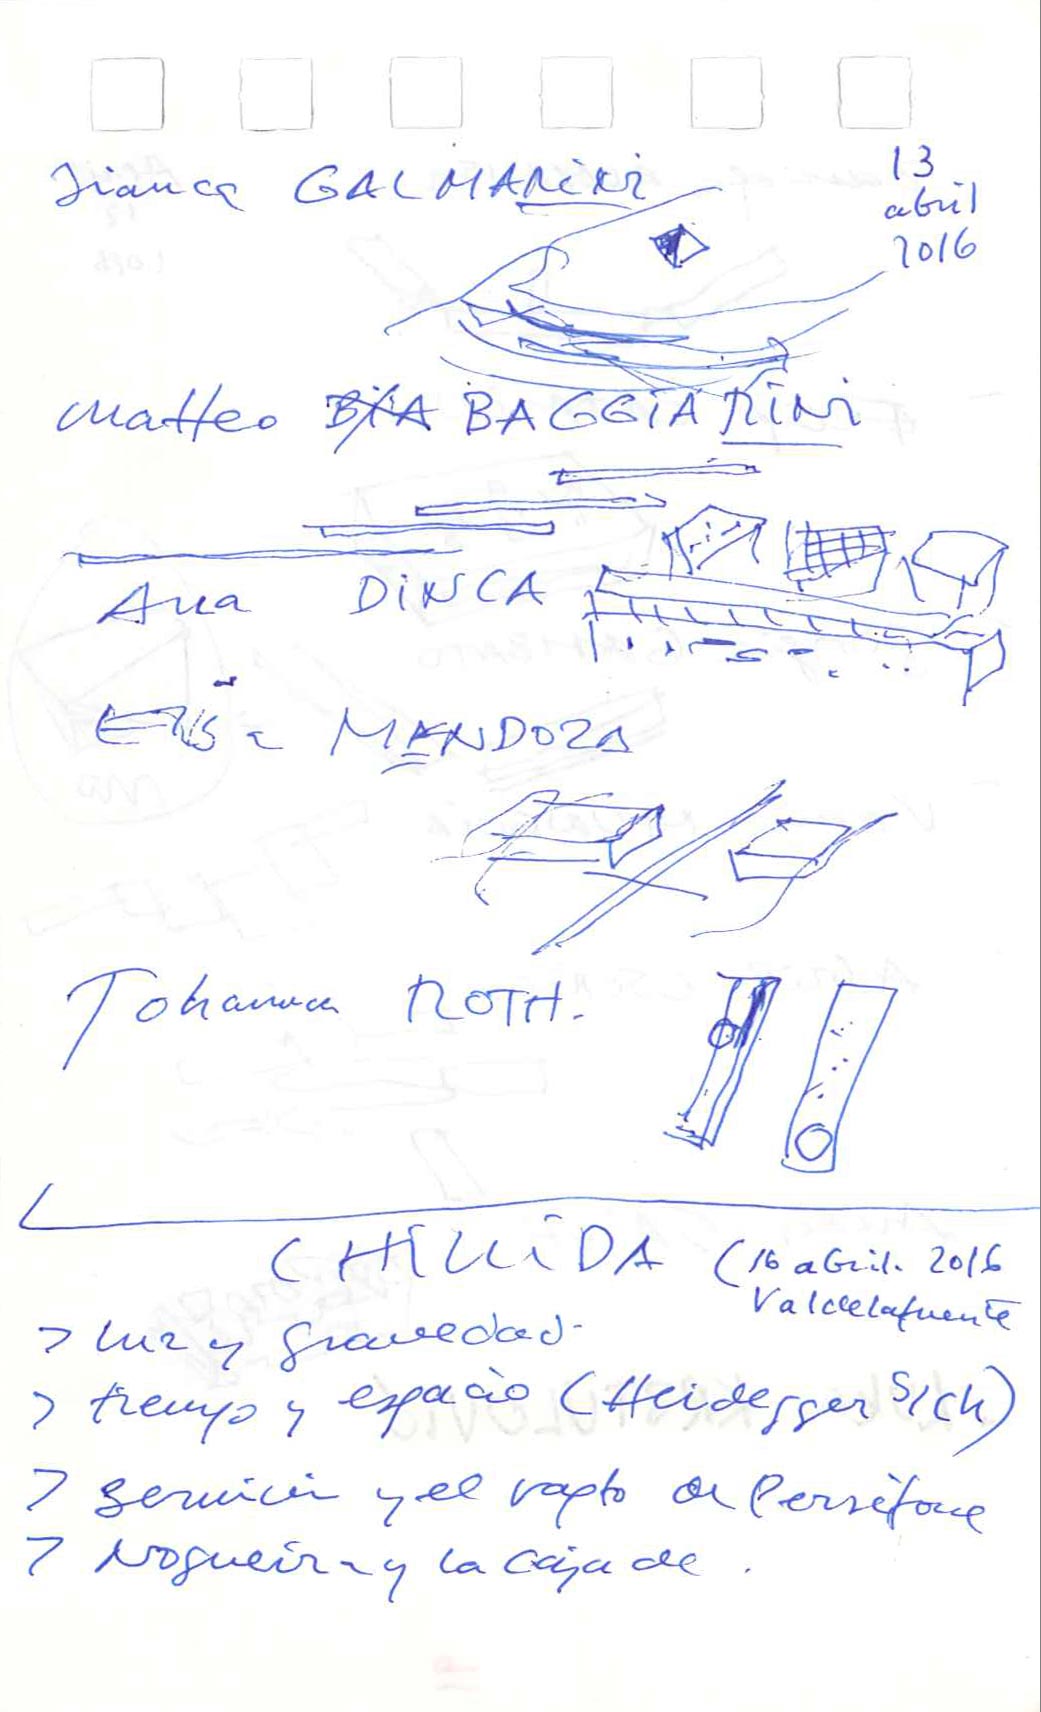 GALMARINI
13
abril
2016
Matteo BAGGIARINI
Ana DINCA
MENDOZA
Johanna ROTH.
CHILLIDA (16 abril. 2016
Valdelafuente
> luz y gravedad.
> tiempo y espacio (Heidegger s/ch)
> y el rapto de Perséfone
> Nogueira y la caja de .